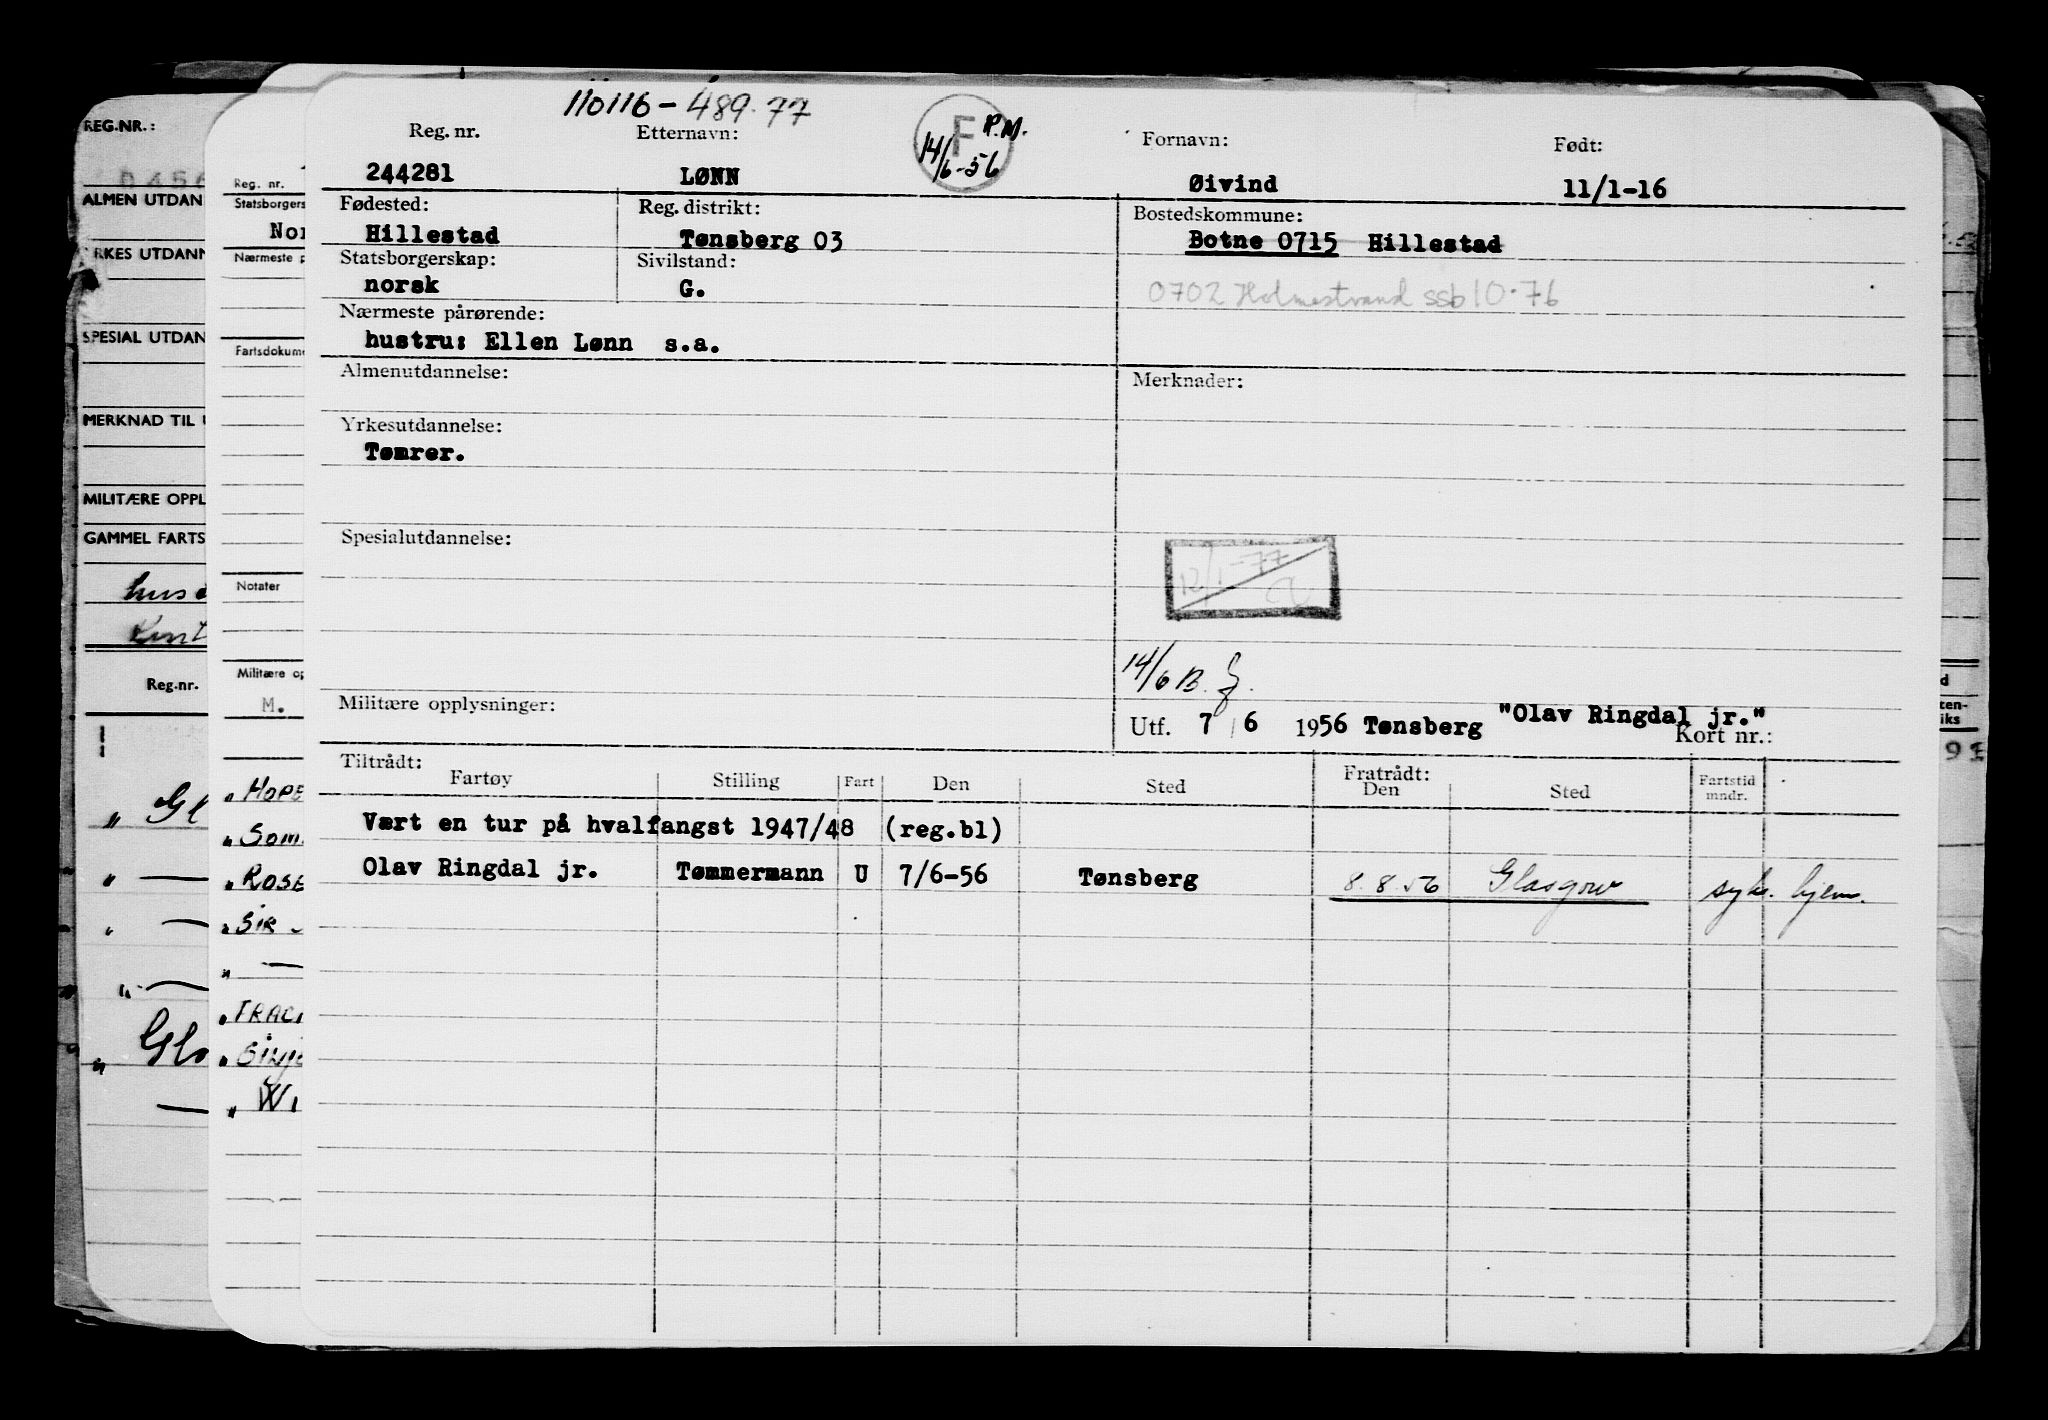 110116-489.77
Reg. nr. Etternavn: Fornavn: Født:
F P.M. 14/6-56
244281 LØNN Øivind 11/1-16
Fødested: Reg. distrikt: Bostedskommune:
Hillestad Tønsberg 03 Botne 0715 Hillestad
Statsborgerskap: Sivilstand:
norsk G. 0702 Holmestrand ssb 10.76
Nærmeste pårørende:
hustru: Ellen Lønn s.a.
Almenutdannelse: Merknader:
Yrkesutdannelse:
Tømrer.
Spesialutdannelse:
12/1-77
14/6 B.
Militære opplysninger:
Utf. 7/6 1956 Tønsberg "Olav Ringdal jr."
Kort nr.:
Tiltrådt: Fratrådt:
Fartøy Stilling Fart Den Sted Den Sted Fartstid mndr.
Vært en tur på hvalfangst 1947/48 (reg.bl)
Olav Ringdal jr. Tømmermann U 7/6-56 Tønsberg 8.8.56 Glasgow syk. hjem.
REG.NR.:
ALMEN UTDAN
YRKES UTDANN
SPESIAL UTDAN
MERKNAD TIL U
MILITÆRE OPPL
GAMMEL FARTS
Reg.nr.
Reg. nr.
Statsborgers
Nor
Nærmeste p
Fartsdokume
Notater
Militære op
M.
" HOPE
" SOM
" ROSE
" SIR
" TRAC
" WI